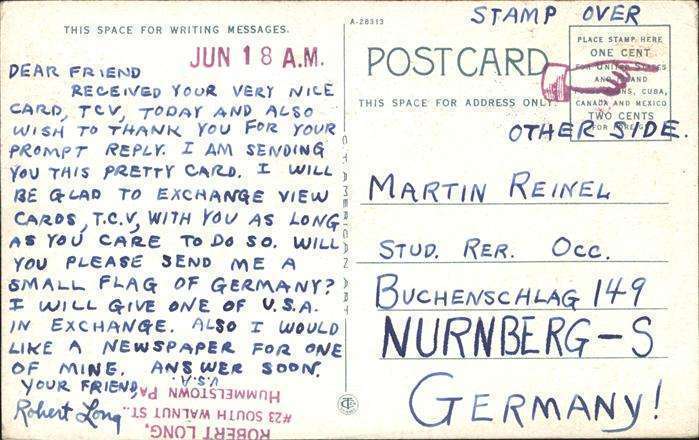 THIS SPACE FOR WRITING MESSAGES.
JUN 18 A.M.
DEAR FRIEND
RECEIVED YOUR VERY NICE
CARD, TCV, TODAY AND ALSO
WISH TO THANK YOU FOR YOUR
PROMPT REPLY. I AM SENDING
YOU THIS PRETTY CARD. I WILL
BE GLAD TO EXCHANGE VIEW
CARDS, T.C.V, WITH YOU AS LONG
AS YOU CARE TO DO SO. WILL
YOU PLEASE SEND ME A
SMALL FLAG OF GERMANY?
I WILL GIVE ONE OF U.S.A.
IN EXCHANGE. ALSO I WOULD
LIKE A NEWSPAPER FOR ONE
OF MINE. ANSWER SOON.
YOUR FRIEND,
Robert Long
ROBERT LONG,
#23 SOUTH WALNUT ST.,
HUMMELSTOWN PA,
U.S.A.
A-28313
STAMP OVER
POST CARD
THIS SPACE FOR ADDRESS ONLY
PLACE STAMP HERE
ONE CENT
FOR UNITED STATES
AND
CUBA,
CANADA AND MEXICO
TWO CENTS
FOR
OTHER SIDE.
MARTIN REINEL
STUD. RER. OCC.
BUCHENSCHLAG 149
NURNBERG-S
GERMANY!